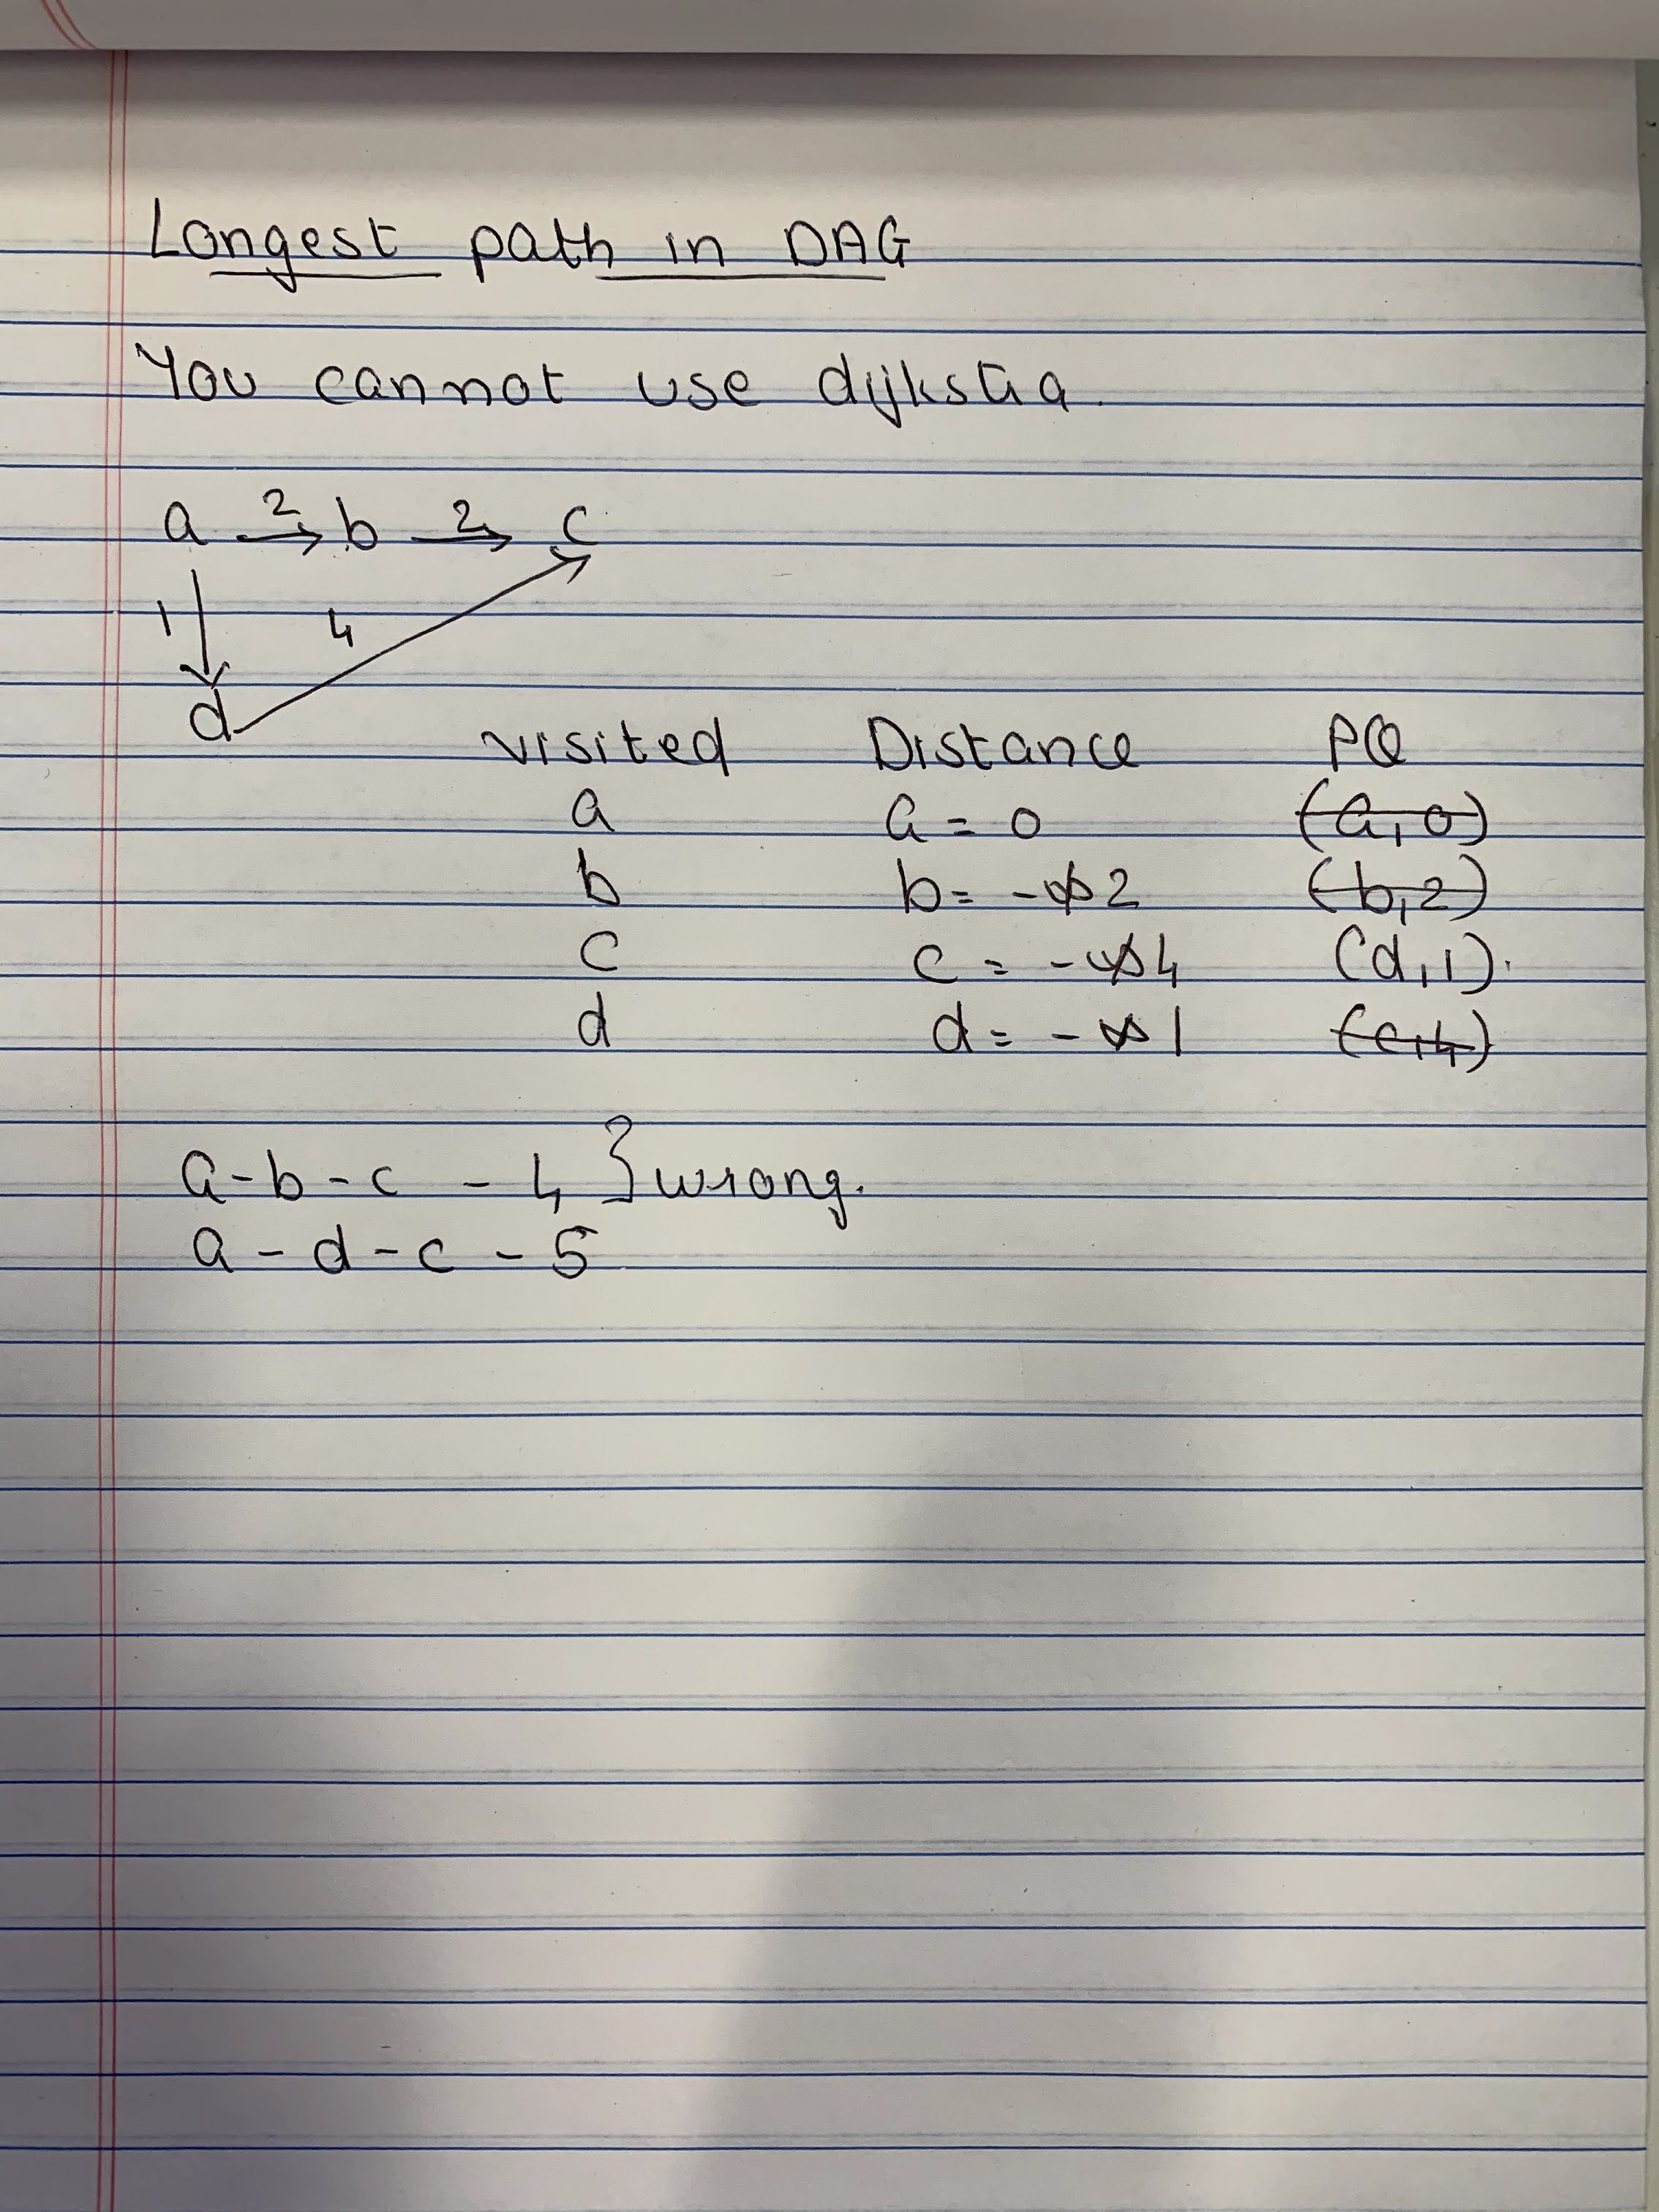 Longest path in DAG
You cannot use dijkstra.
a 2 b 2 c
1 4
d
visited Distance PQ
a a = 0 (a, 0)
b b = -∞ 2 (b, 2)
c c = -∞ 4 (d, 1).
d d = -∞ 1 (c, 4)
a - b - c - 4 } wrong.
a - d - c - 5